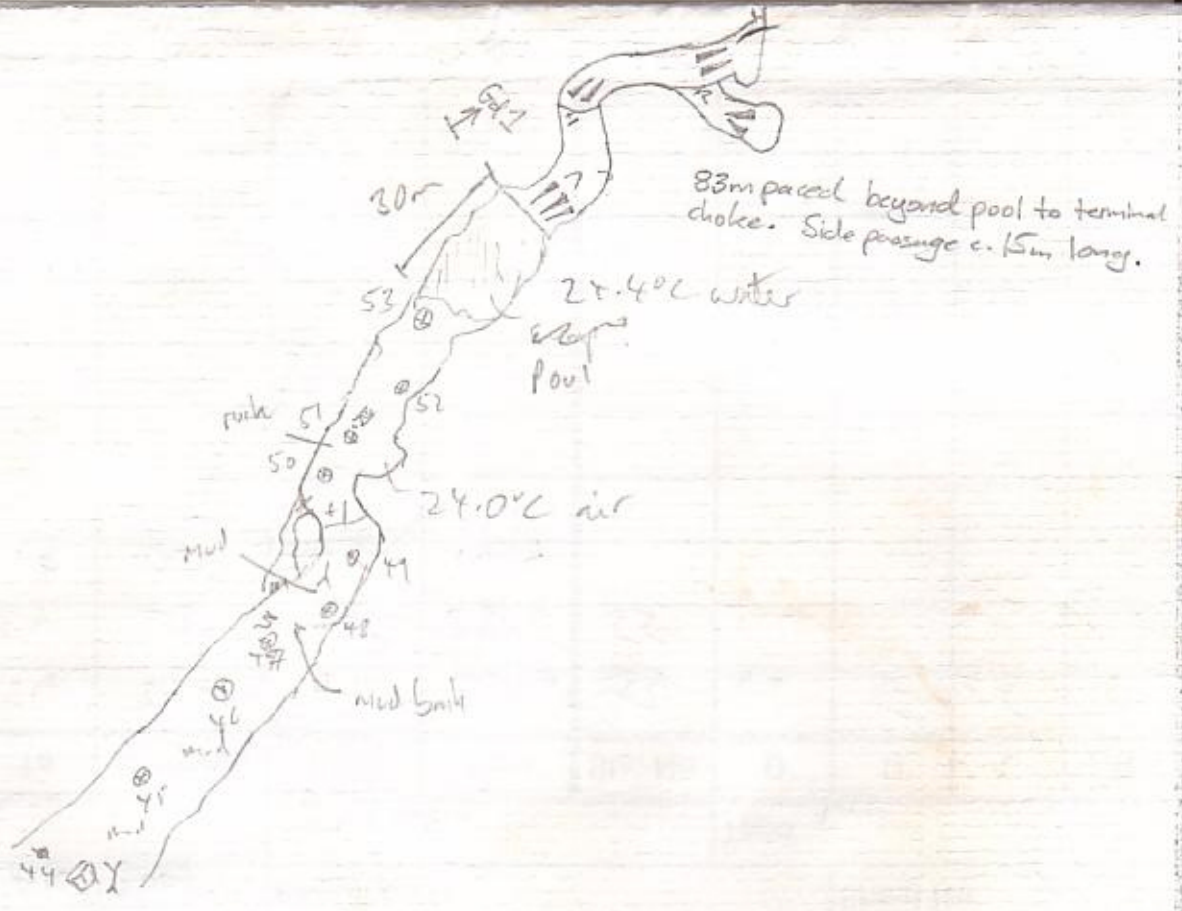 Gd.1
30m
83m paced beyond pool to terminal
choke. Side passage c. 15m long.
53
24.4°C water
Pool
52
rock 51
50
24.0°C air
+1
Mud
49
48
47
mud bank
46
mud
45
mud
44